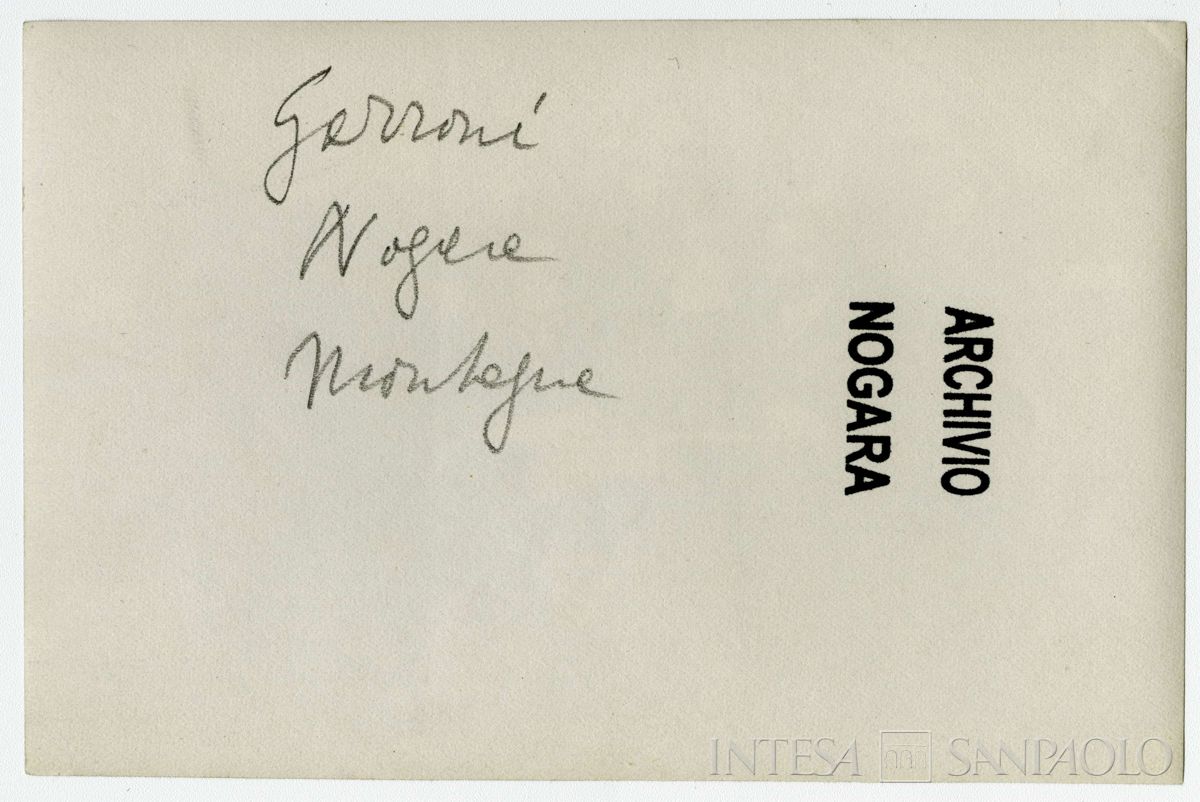 Garroni
Nogara
Montagna
ARCHIVIO
NOGARA
INTESA SANPAOLO